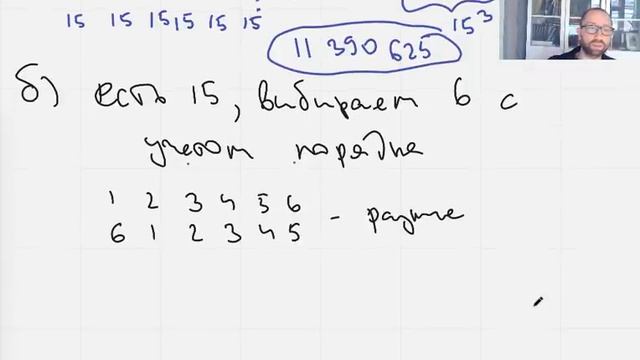 15 15 15 15 15 15
15³
11 390 625
б) есть 15, выбирает 6 с
учетом порядка
1 2 3 4 5 6
6 1 2 3 4 5 - разные